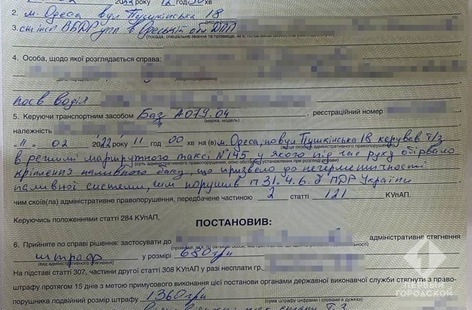 2. м. Одеса вул Пушкінська 18
4. Особа, щодо якої розглядається справа:
посв водія
5. Керуючи транспортним засобом Баз А079.04, реєстраційний номер
належність
11 02 2022 11 год 00 хв на(в) м. Одеса, по вул Пушкінська 18 керував т/з
в режимі маршрутного таксі №145, у якого під час руху обірвало
кріплення паливного баку, що призвело до негерметичності
паливної системи, чим порушив п 31.4.6.б ПДР України
чим скоїв(ла) адміністративне правопорушення, передбачене частиною 2 статті 121 КУпАП.
Керуючись положеннями статті 284 КУпАП,
ПОСТАНОВИВ:
6. Прийняте по справі рішення: застосувати до адміністративне стягнення
штраф у розмірі 680 грн
На підставі статті 307, частини другої статті 308 КУпАП у разі несплати гр.
протягом 15 днів з метою примусового виконання цієї постанови органами державної виконавчої служби стягнути з право-
порушника подвійний розмір штрафу 1360 грн
ПЕРВЫЙ
ГОРОДСКОЙ